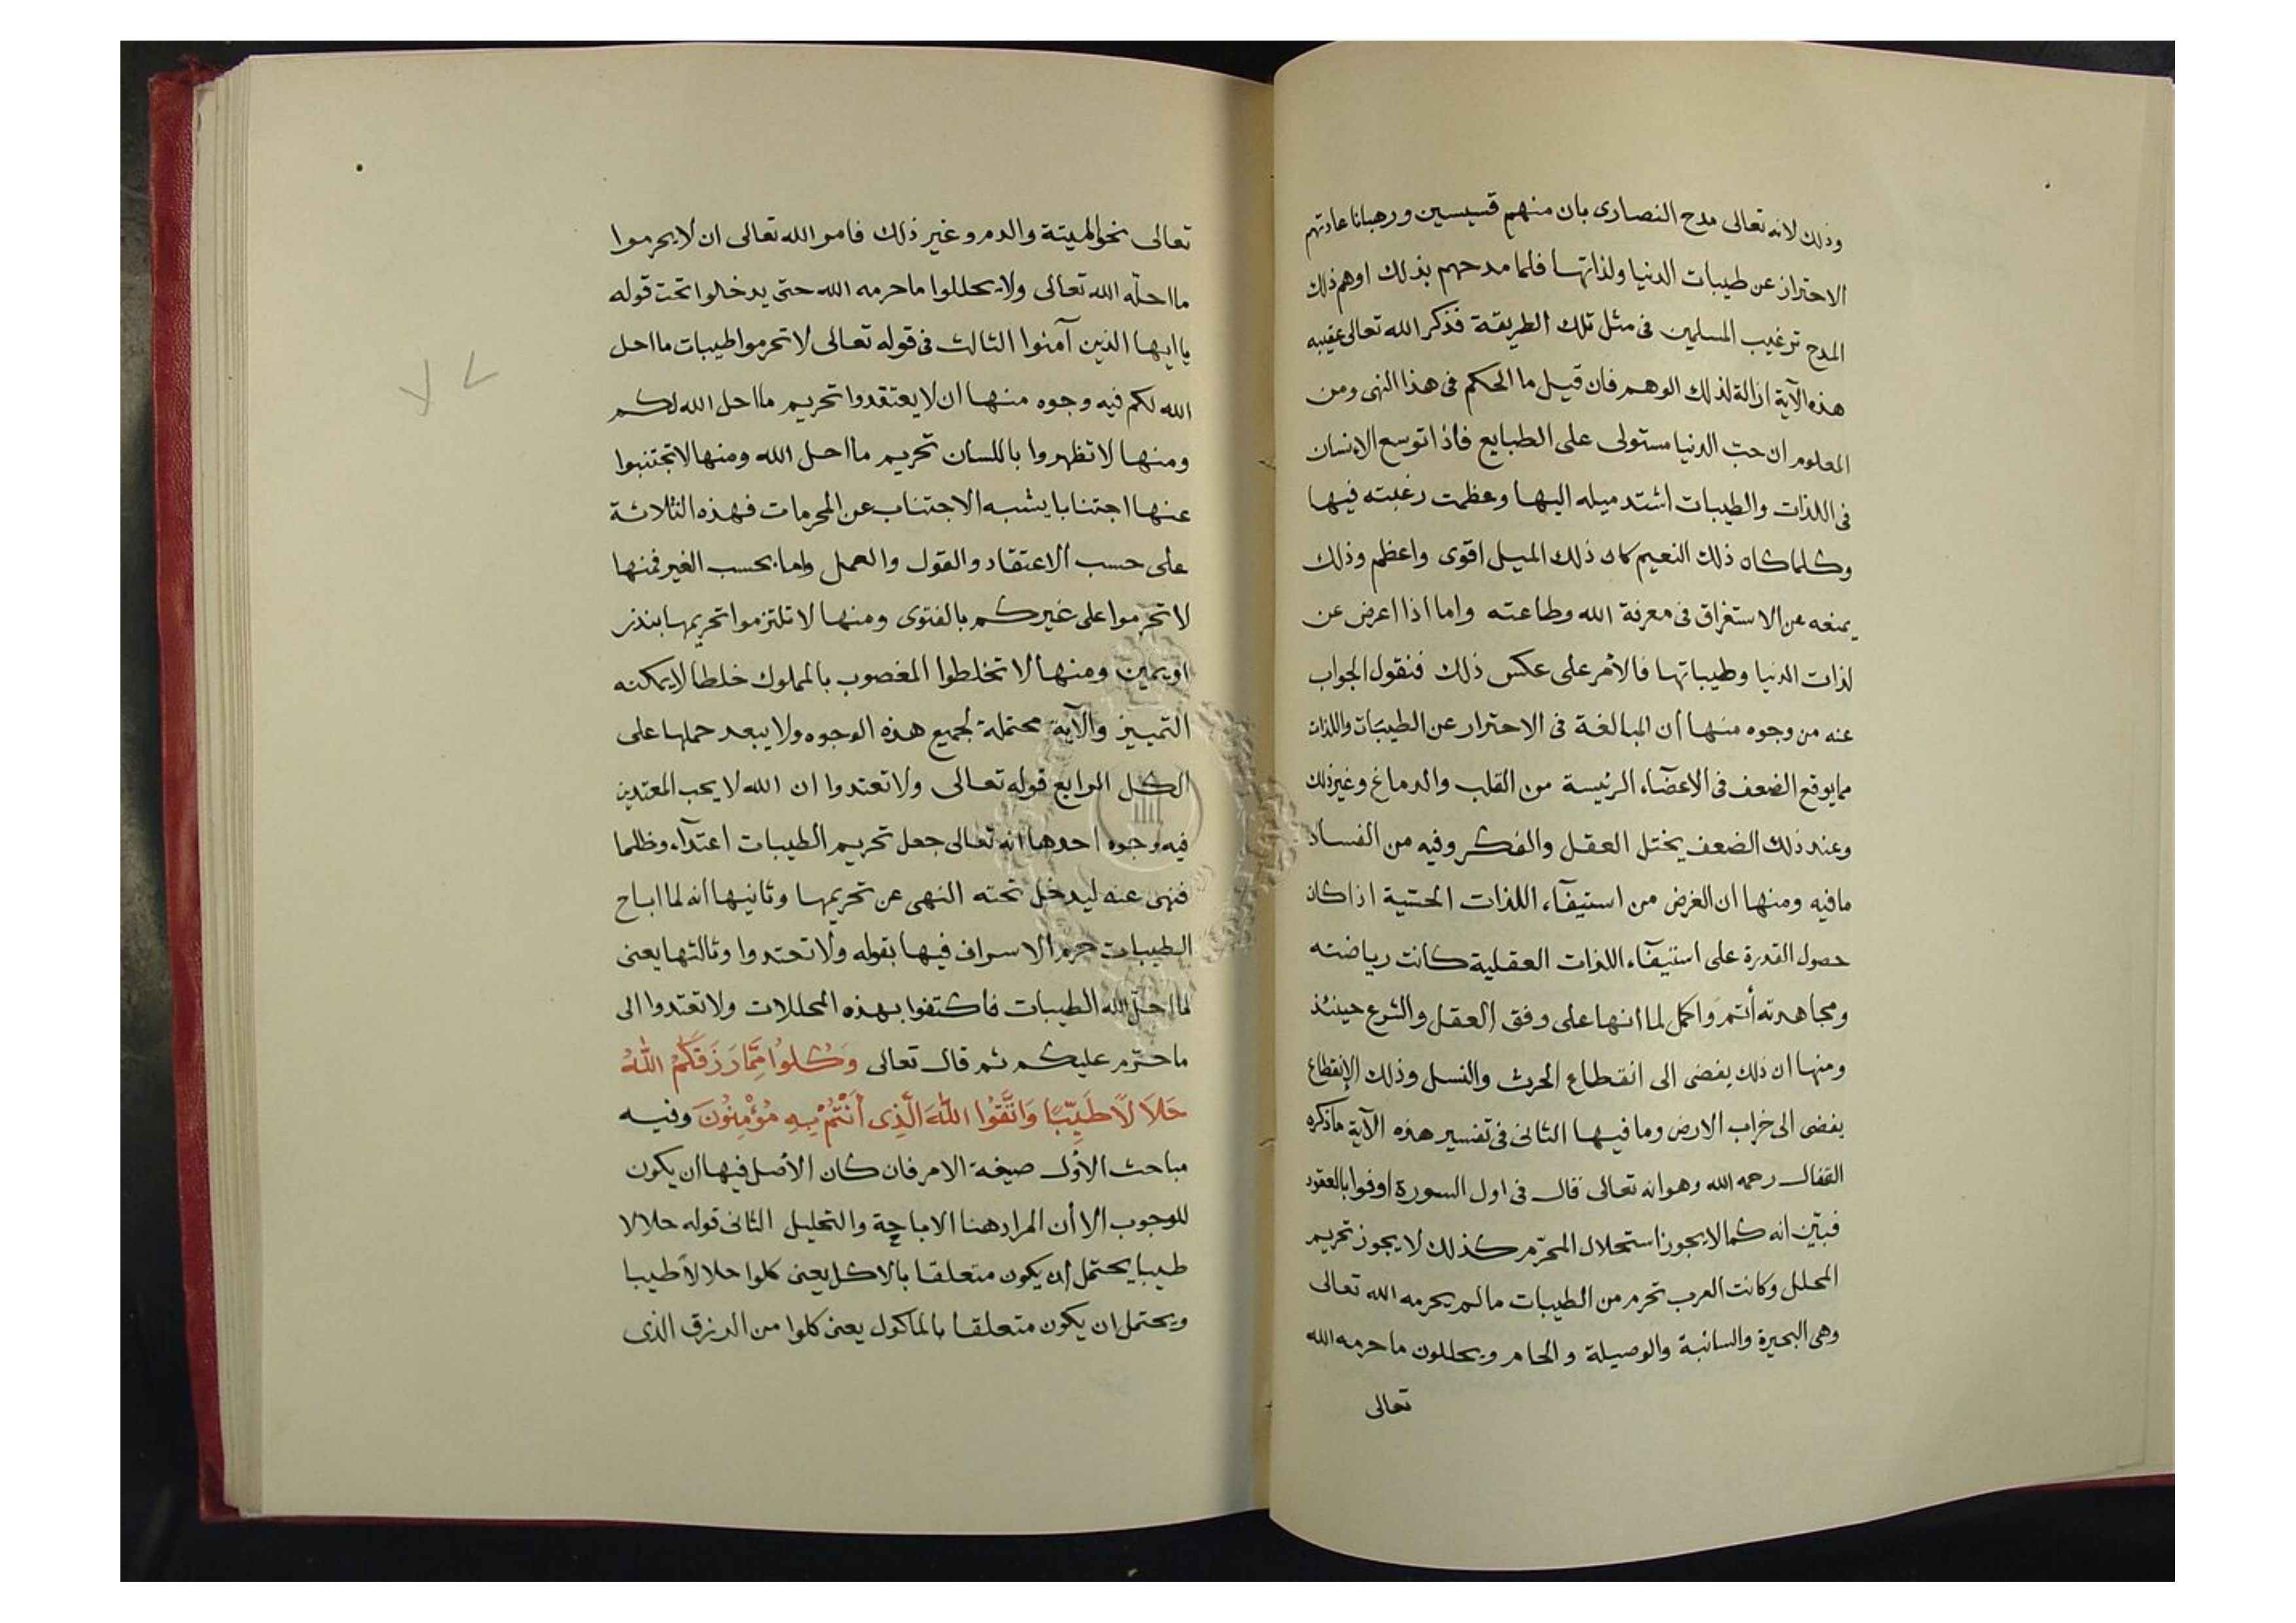 وذلك لانه تعالى مدح النصارى بان منهم قسيسين ورهبانا عادتهم
الاحتراز عن طيبات الدنيا ولذاتها فلما مدحهم بذلك اوهم ذلك
المدح ترغيب المسلمين فى مثل تلك الطريقة فذكر الله تعالى عقيبه
هذه الآية ازالة لذلك الوهم فان قيل ما الحكم فى هذا النهى ومن
المعلوم ان حبّ الدنيا مستولى على الطبايع فاذا توسع الانسان
فى اللذات والطيبات اشتد ميله اليها وعظمت رغبته فيها
وكلما كان ذلك النعيم كان ذلك الميل اقوى واعظم وذلك
يمنعه عن الاستغراق فى معرفة الله وطاعته واما اذا اعرض عن
لذات الدنيا وطيباتها فالأمر على عكس ذلك فنقول الجواب
عنه من وجوه منها أن المبالغة فى الاحترار عن الطيبات واللذات
مما يوقع الضعف فى الاعضآء الرئيسة من القلب والدماغ وغير ذلك
وعند ذلك الضعف يختل العقل والفكر وفيه من الفساد
مافيه ومنها ان الغرض من استيفآء اللذات الحسّية اذا كان
حصول القدرة على استيفآء اللذات العقلية كانت رياضته
ومجاهدته أتم واكمل لما انها على وفق العقل والشرع حينئذ
ومنها ان ذلك يفضى الى انقطاع الحرث والنسل وذلك الإنقطاع
يفضى الى خراب الارض وما فيها الثانى فى تفسير هذه الآية ماذكره
القفال رحمه الله وهو انه تعالى قال فى اول السورة اوفوا بالعقود
فبيّن انه كما لا يجوز استحلال المحرّم كذلك لا يجوز تحريم
المحلل وكانت العرب تحرم من الطيبات ما لم يحرمه الله تعالى
وهى البحيرة والسائبة والوصيلة والحام ويحللون ما حرمه الله
تعالى
تعالى نحو الميتة والدم وغير ذلك فامر الله تعالى ان لا يحرموا
ما احلّه الله تعالى ولا يحللوا ما حرمه الله حتى يدخلوا تحت قوله
يا ايها الذين آمنوا الثالث فى قوله تعالى لا تحرموا طيبات ما احل
الله لكم فيه وجوه منها ان لا يعتقدوا تحريم ما احل الله لكم
ومنها لا تظهروا باللسان تحريم ما احل الله ومنها لا تجتنبوا
عنها اجتنابا يشبه الاجتناب عن المحرمات فهذه الثلاثة
على حسب الاعتقاد والقول والعمل واما بحسب الغير فمنها
لا تحرّموا على غيركم بالفتوى ومنها لا تلتزموا تحريمها بنذر
او يمين ومنها لا تخلطوا المغصوب بالمملوك خلطا لا يمكنه
التمييز والآية محتملة لجميع هذه الوجوه ولا يبعد حملها على
الكل الرابع قوله تعالى ولا تعتدوا ان الله لا يحب المعتدين
فيه وجوه احدها انه تعالى جعل تحريم الطيبات اعتدآء وظلما
فنهى عنه ليدخل تحته النهى عن تحريمها وثانيها أنه لما اباح
الطيبات حرم الاسراف فيها بقوله ولا تعتدوا وثالثها يعنى
لما احلّ الله الطيبات فاكتفوا بهذه المحللات ولا تعتدوا الى
ما حرّم عليكم ثم قال تعالى وَكُلوُا مِمَّا رَزَقَكُمْ اللهُ
حَلَالًا طَيِّبًا وَاتَّقُوا اللهَ الَّذِى أَنْتُمْ بِهِ مُؤْمِنُونَ وفيه
مباحث الأول صيغة الامر فان كان الأصل فيها ان يكون
للوجوب الا أن المراد هنا الاباحة والتحليل الثانى قوله حلالا
طيبا يحتمل ان يكون متعلقا بالاكل يعنى كلوا حلالاً طيبا
ويحتمل ان يكون متعلقا بالماكول يعنى كلوا من الرزق الذى